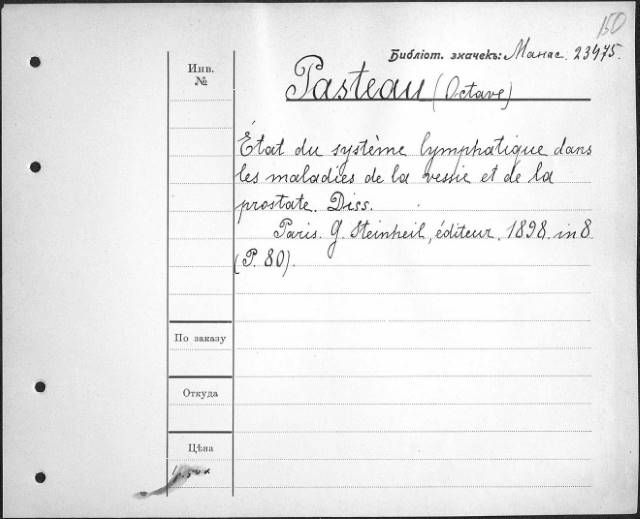 150
Библіот. значекъ: Манас. 23475.
Инв.
№
Pasteau (Octave)
État du système lymphatique dans
les maladies de la vessie et de la
prostate. Diss.
Paris. G. Steinheil, éditeur. 1898. in 8
(P. 80).
По заказу
Откуда
Цѣна